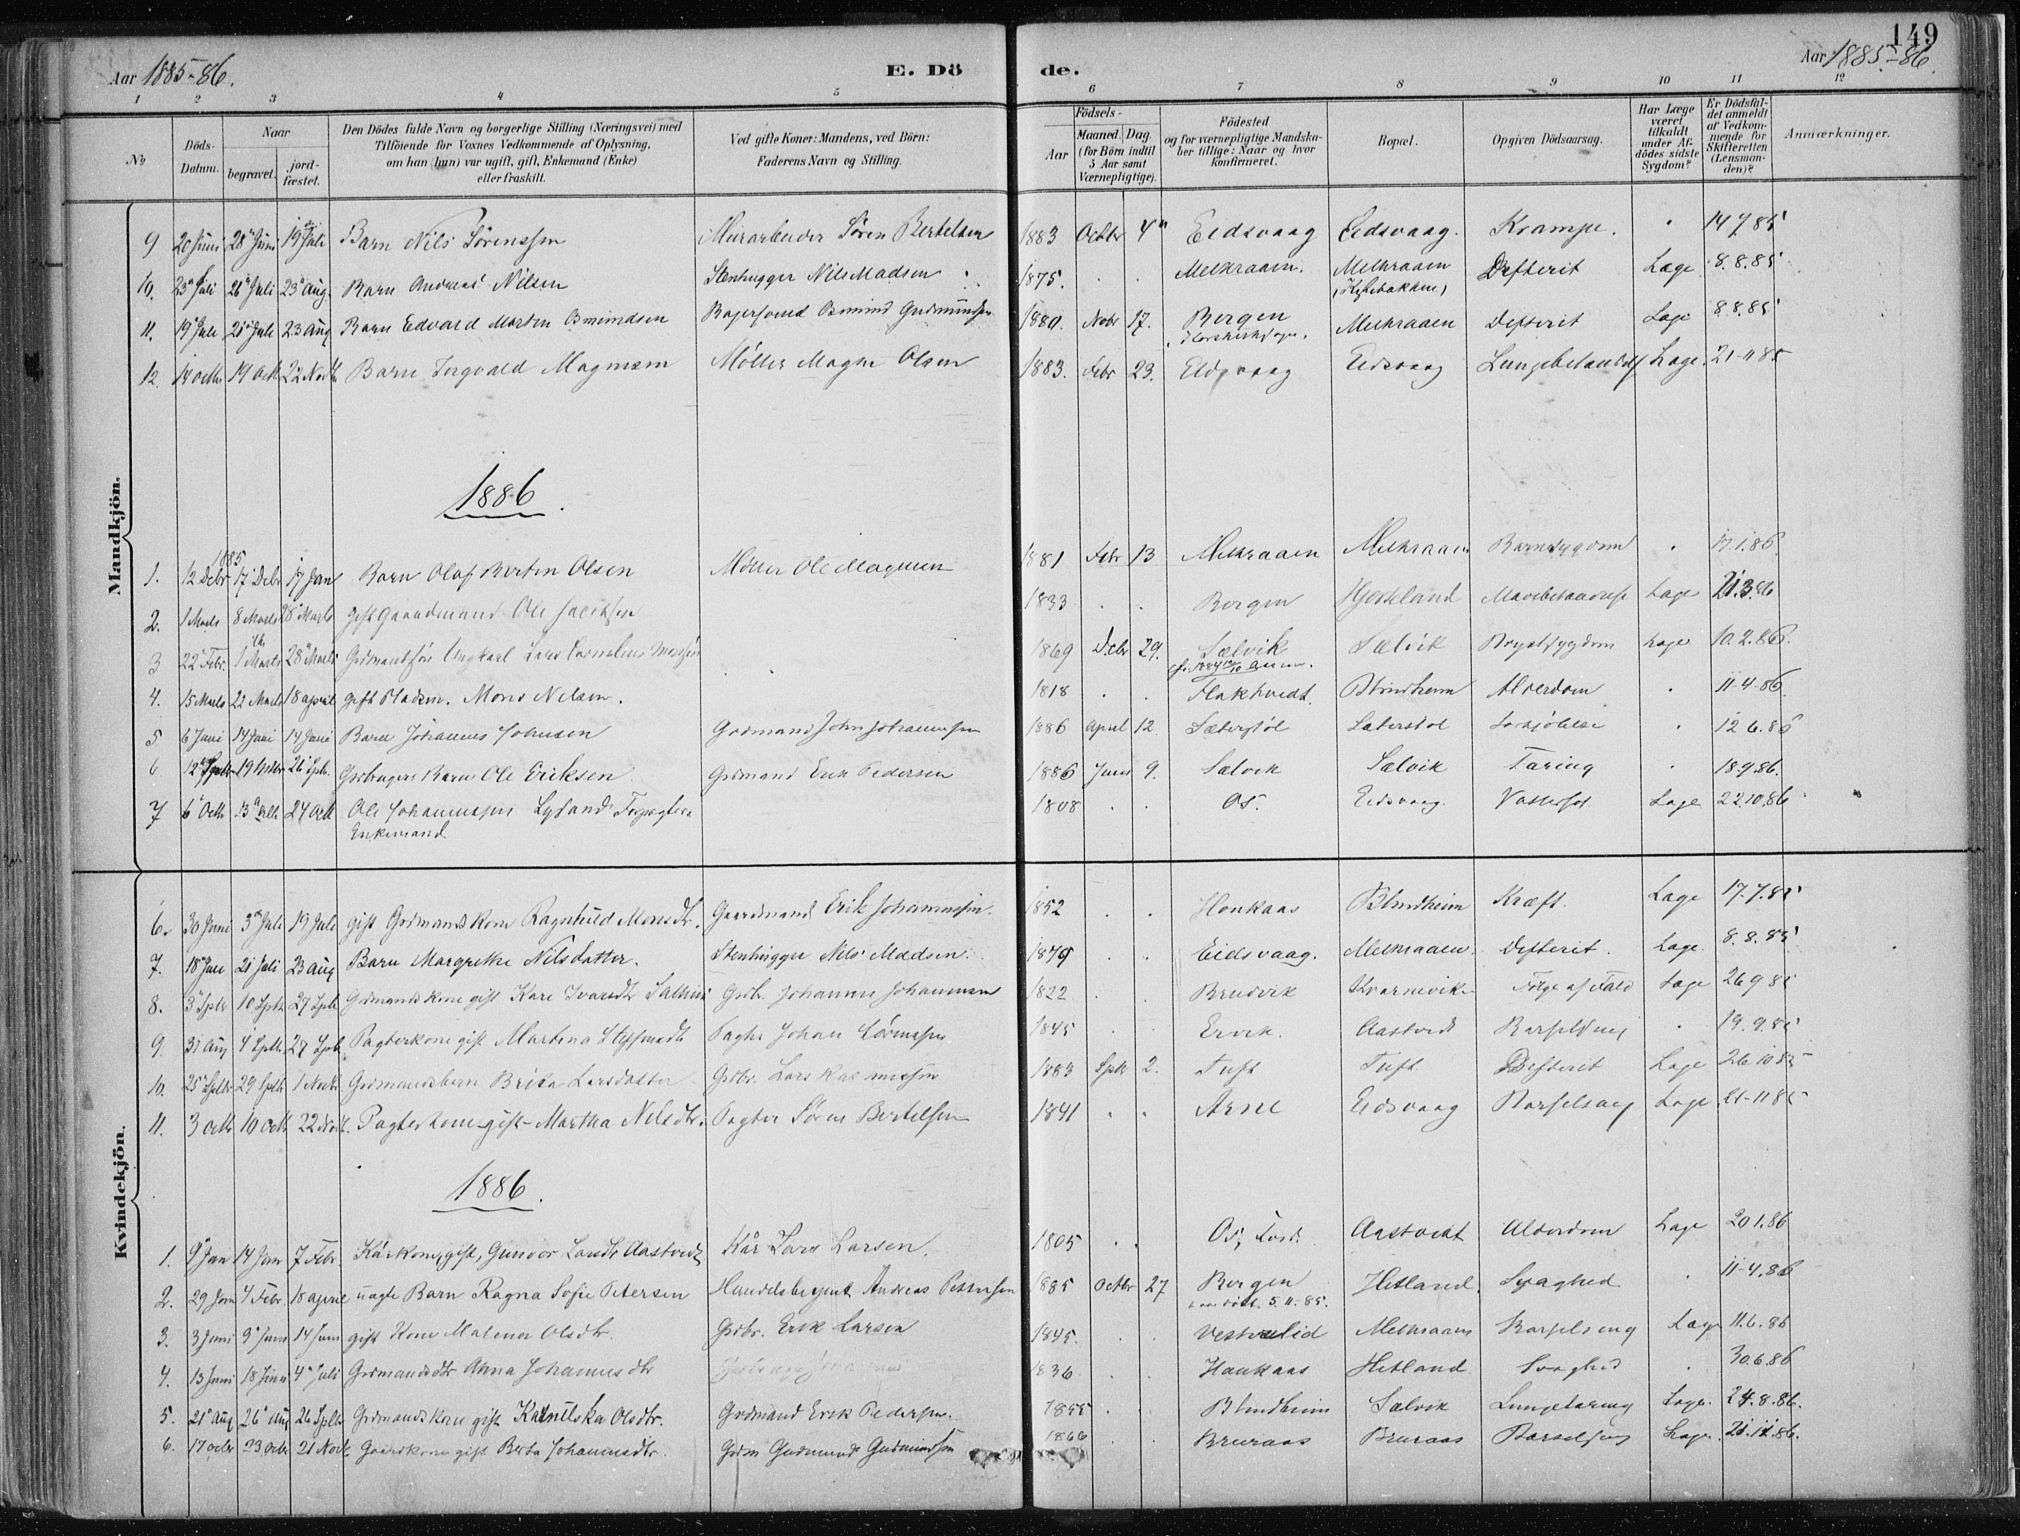 149
Aar 1885-86.
E. Döde.
Aar 1885-86.
1 2 3 4 5 6 7 8 9 10 11 12
No
Döds-Datum.
Naar
begravet.
jord-fæstet.
Den Dödes fulde Navn og borgerlige Stilling (Næringsvei) med
Tilföiende for Voxnes Vedkommende af Oplysning,
om han (hun) var ugift, gift, Enkemand (Enke)
eller fraskilt.
Ved gifte Koner: Mandens, ved Börn:
Faderens Navn og Stilling.
Födsels-
Aar
Maaned. Dag.
(for Börn indtil
5 Aar samt
Værnepligtige).
Födested
og for værnepligtige Mandska-
ber tillige: Naar og hvor
konfirmeret.
Bopæl.
Opgiven Dödsaarsag.
Har Læge
været
tilkaldt
under Af-
dödes sidste
Sygdom?
Er Dödsfal-
det anmeldt
af Vedkom-
mende for
Skifteretten
(Lensman-
den)?
Anmærkninger.
Mandkjön.
9 20 Juni 28 Juni 19 Juli Barn Nils Sörenssen Murarbeider Sören Bertelsen 1883 Octbr 4 Eidsvaag Eidsvaag. Krampe. " 14 7 85
10. 23 Juli 26 Juli 23 Aug. Barn Andreas Nilsen Stenhugger Nils Madsen 1875. . . Melkraaen. Melkraaen Defterit Læge 8.8.85
11. 19 Juli 21 Juli 23 Aug Barn Edvard Martin Osmundsen Osmund 1880. Novbr 17. Bergen Melkraaen Defterit Læge 8.8.85
12. 14 Octbr 19 Octb 22 Novb Barn Ingvald Magnesen Møller Magne Olsen 1883. Febr 23. Eidsvaag Eidsvaag Læge 21-11 85
1886.
1885
1. 12 Debr 17 Debr 17 Jan Barn Olaf Bertin Olsen Møller Ole Magnesen 1881 Febr 13 Melkraaen Melkraaen Barnesygdom . 17.1.86
2. 1 Marts 8 Marts 28 Marts gift Gaardmand Ole Jacobsen 1833 . . Bergen Læge 21.3.86
3 22 Febr 1 Marts 28 Marts Ungkarl Lars Cornelius 1869 Debr 29. Sælvik Sælvik Brystsygdom Læge 10.2.86.
4. 15 Marts 22 Marts 18 April gift Mons Nilsen. 1818 . . Flakhvedt. Blindheim Alderdom . 11-4-86.
5 6 Juni 14 Juni 14 Juni Barn Johannes Johnsen Grdmand John Johannessen 1886 April 12 Sæterstöl Sæterstöl . 12 6.86
6 12 Sptbr 19 Sptbr 26 Sptb. Grdbrugers Barn Ole Eriksen Grdmand Erik Pedersen 1886 Juni 9. Sælvik Sælvik Tæring . 18.9.86.
7 6 Octb 13 Octb 24 Octb Ole Johannessen Enkemand. 1808 . . Os. Eidsvaag. Vattersot. Læge 22.10.86
Kvindekjön.
6. 30 Juni 3 Juli 19 Juli gift Grdmands Kone Ragnhild Monsdtr. Gaardmand Erik Johannessen. 1852 . . Haukaas Blindheim Kræft. Læge 17-7.85
7. 18 Juli 21 Juli 23 Aug Barn Margrethe Nilsdatter. Stenhugger Nils Madsen. 1879 . . Eidsvaag. Melkraaen. Defterit. Læge. 8.8.85
8. 3 Sptb 10 Sptb 27 Sptb Grdmands Kone gift Kari Ivarsdtr Grdbr. Johannes Johannessen 1822 . . Bruvik Følge af Fald Læge 26 9 85
9. 31 Aug 4 Sptb. 27 Sptb. Pagterkone gift Martina Pagter Johan Sörenssen 1845 . . Ervik. Aastvedt Barselseng " 19.9.85
10. 25 Sptb 29 Sptb 1 Novb Grdmandsbarn Brita Larsdatter Grdbr. Lars 1883 Sptb 2. Tuft Tuft Defterit Læge 26 10 85
11. 3 Octb 10 Octb 22 Novb. Pagterkone gift Martha Nilsdtr. Pagter Sören Bertelsen 1841 . . Arne Eidsvaag Barselseng Læge 21-11 85
1886.
1. 9 Jan 14 Jan 7 Febr. Kårkone, gift, Gunvor Larsdtr Aastvedt Kår Lars Larsen. 1805 . . Os, Aastvedt Alderdom Læge 20 1.86
2. 29 Jan 4 Febr. 18 April uægte Barn Ragna Sofie Petersen Andreas Pettersen 1885 Octbr 27 Bergen 5.11.85. Hetland Svaghed . 11-4.86
3. 3 Juni 9 Juni 14 Juni gift Kone Malena Olsdtr. Grdbr. Erik Larsen 1845. . . Vestrelid Melkraaen Barselseng Læge 11.6.86
4. 13 Juni 18 Juni 4 Juli Grdmandsdtr Anna Johannesdtr 1836 . . Haukaas Hetland Svaghed . 30.6.86
5. 21 Aug 26 Aug 26 Sptb Grdmands Kone gift Olsdtr. Grdmand Erik Pedersen. 1855 . . Blindheim Sælvik Lungetæring Læge. 24.8.86.
6. 17 Octbr 23 Octr 21 Novb Gaardkone gift Berta Johannesdtr. Grdm Gudmund Gudmundsen 1866 . . Bruraas Bruraas Barselseng Læge 21.11.86.